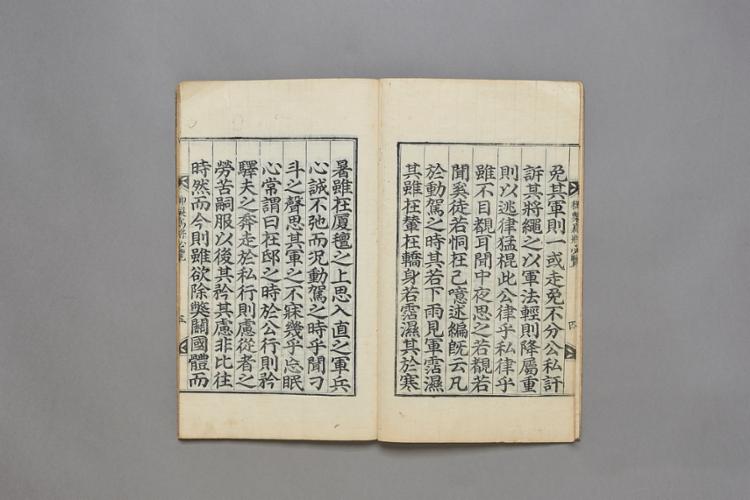 免其軍則一或走免不分公私訐
訴其將繩之以軍法輕則降屬重
則以逃律猛棍此公律乎私律乎
雖不目覩耳聞中夜思之若覩若
聞奚徒若恫在己噫述編旣云凡
於動駕之時其若下雨見軍霑濕
其雖在輦在轎身若霑濕其於寒
暑雖在厦氊之上思入直之軍兵
心誠不弛而況動駕之時乎聞刁
斗之聲思其軍之不寐幾乎忘眠
心常謂曰在邸之時於公行則矜
驛夫之奔走於私行則慮從者之
勞苦嗣服以後其矜其慮非比往
時然而今則雖欲除獘關國體而
御製爲將必覽
五